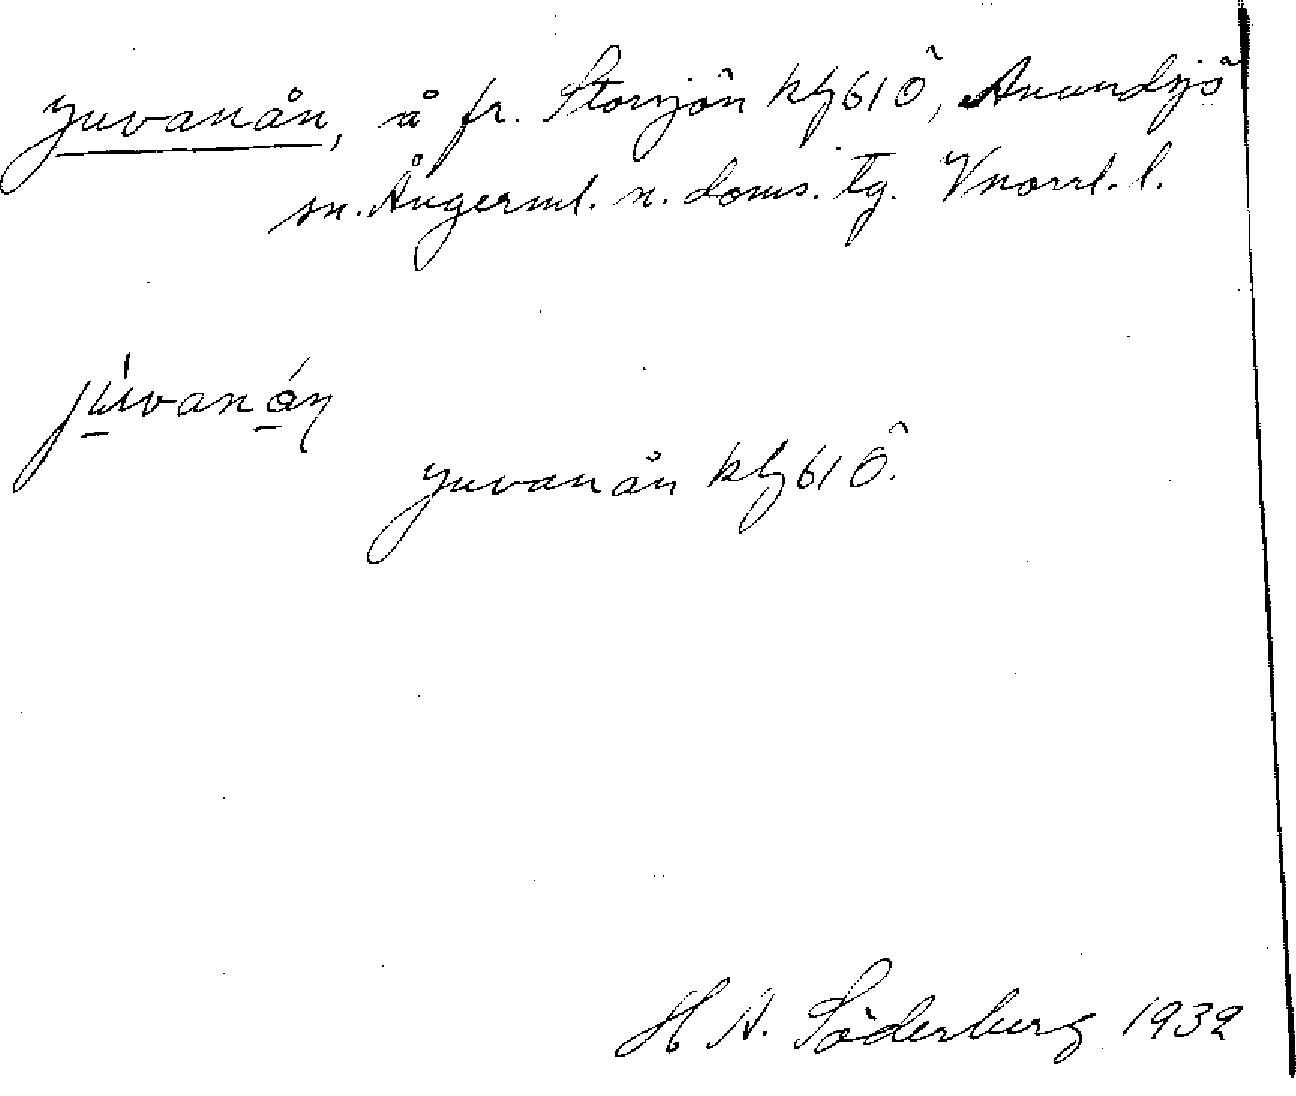 Juvanån, å fr. Storsjön kbl 61 Ö, Anundsjö
sn. Ångerml. n. doms. tg. Vnorrl. l.
júvanán
Juvanån kbl 61 Ö.
H A. Söderberg 1932